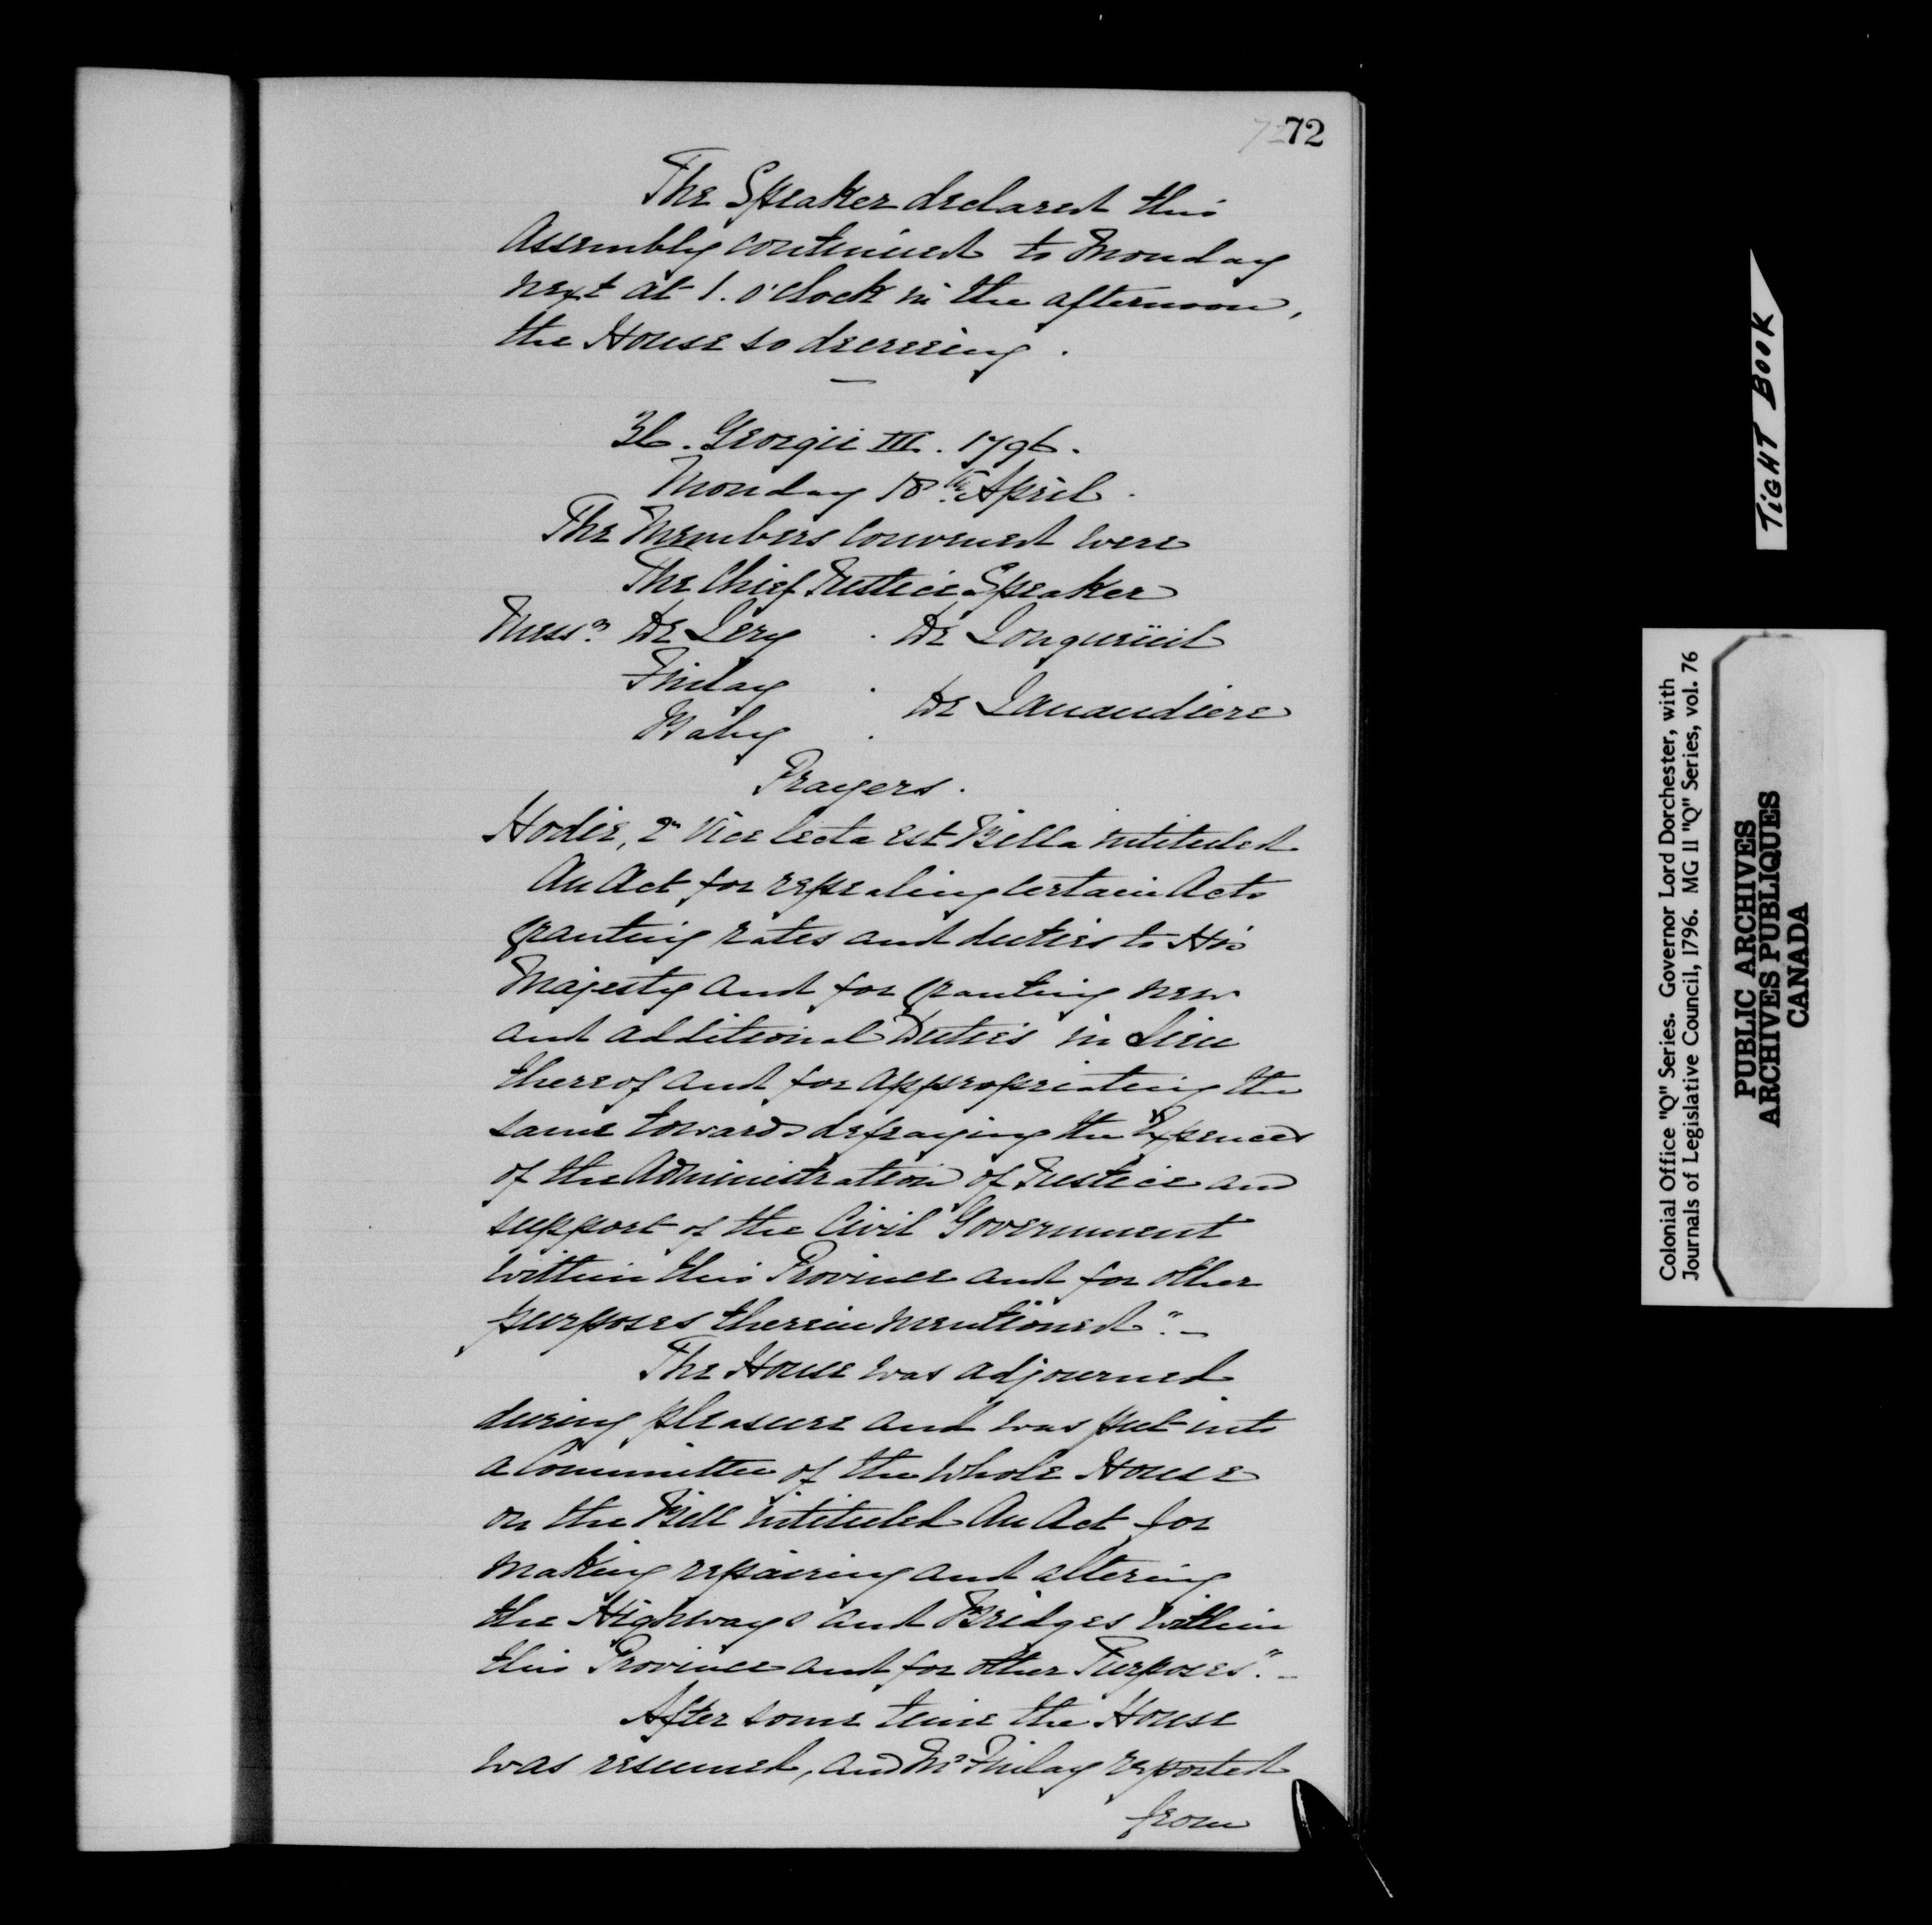 72 72
The Speaker declared this
Assembly continued to Monday
next at 1. o'clock in the afternoon,
the House so decreeing.
36. Georgii III. 1796.
Monday 18th April.
The Members convened were
The Chief Justice Speaker
Messrs. De Lery . De Longueüil
Finlay .
De Lanaudiere
Baby .
Prayers.
Hodie, 2a Vice lecta est Billa intituled
An Act for repealing certain Acts
granting rates and duties to His
Majesty and for granting new
and additional Duties in Lieu
thereof and for appropriating the
same towards defraying the Expences
of the Administration of Justice and
support of the Civil Government
within this Province and for other
purposes therein mentioned". –
The House was adjourned
during pleasure and was put into
a Committee of the Whole House
on the Bill intituled An Act for
making repairing and altering
the Highways and Bridges within
this Province and for other Purposes". –
After some time the House
was resumed, and Mr Finlay reported
from
TIGHT BOOK
Colonial Office "Q" Series. Governor Lord Dorchester, with
Journals of Legislative Council, 1796. MG 11 "Q" Series, vol. 76
PUBLIC ARCHIVES
ARCHIVES PUBLIQUES
CANADA